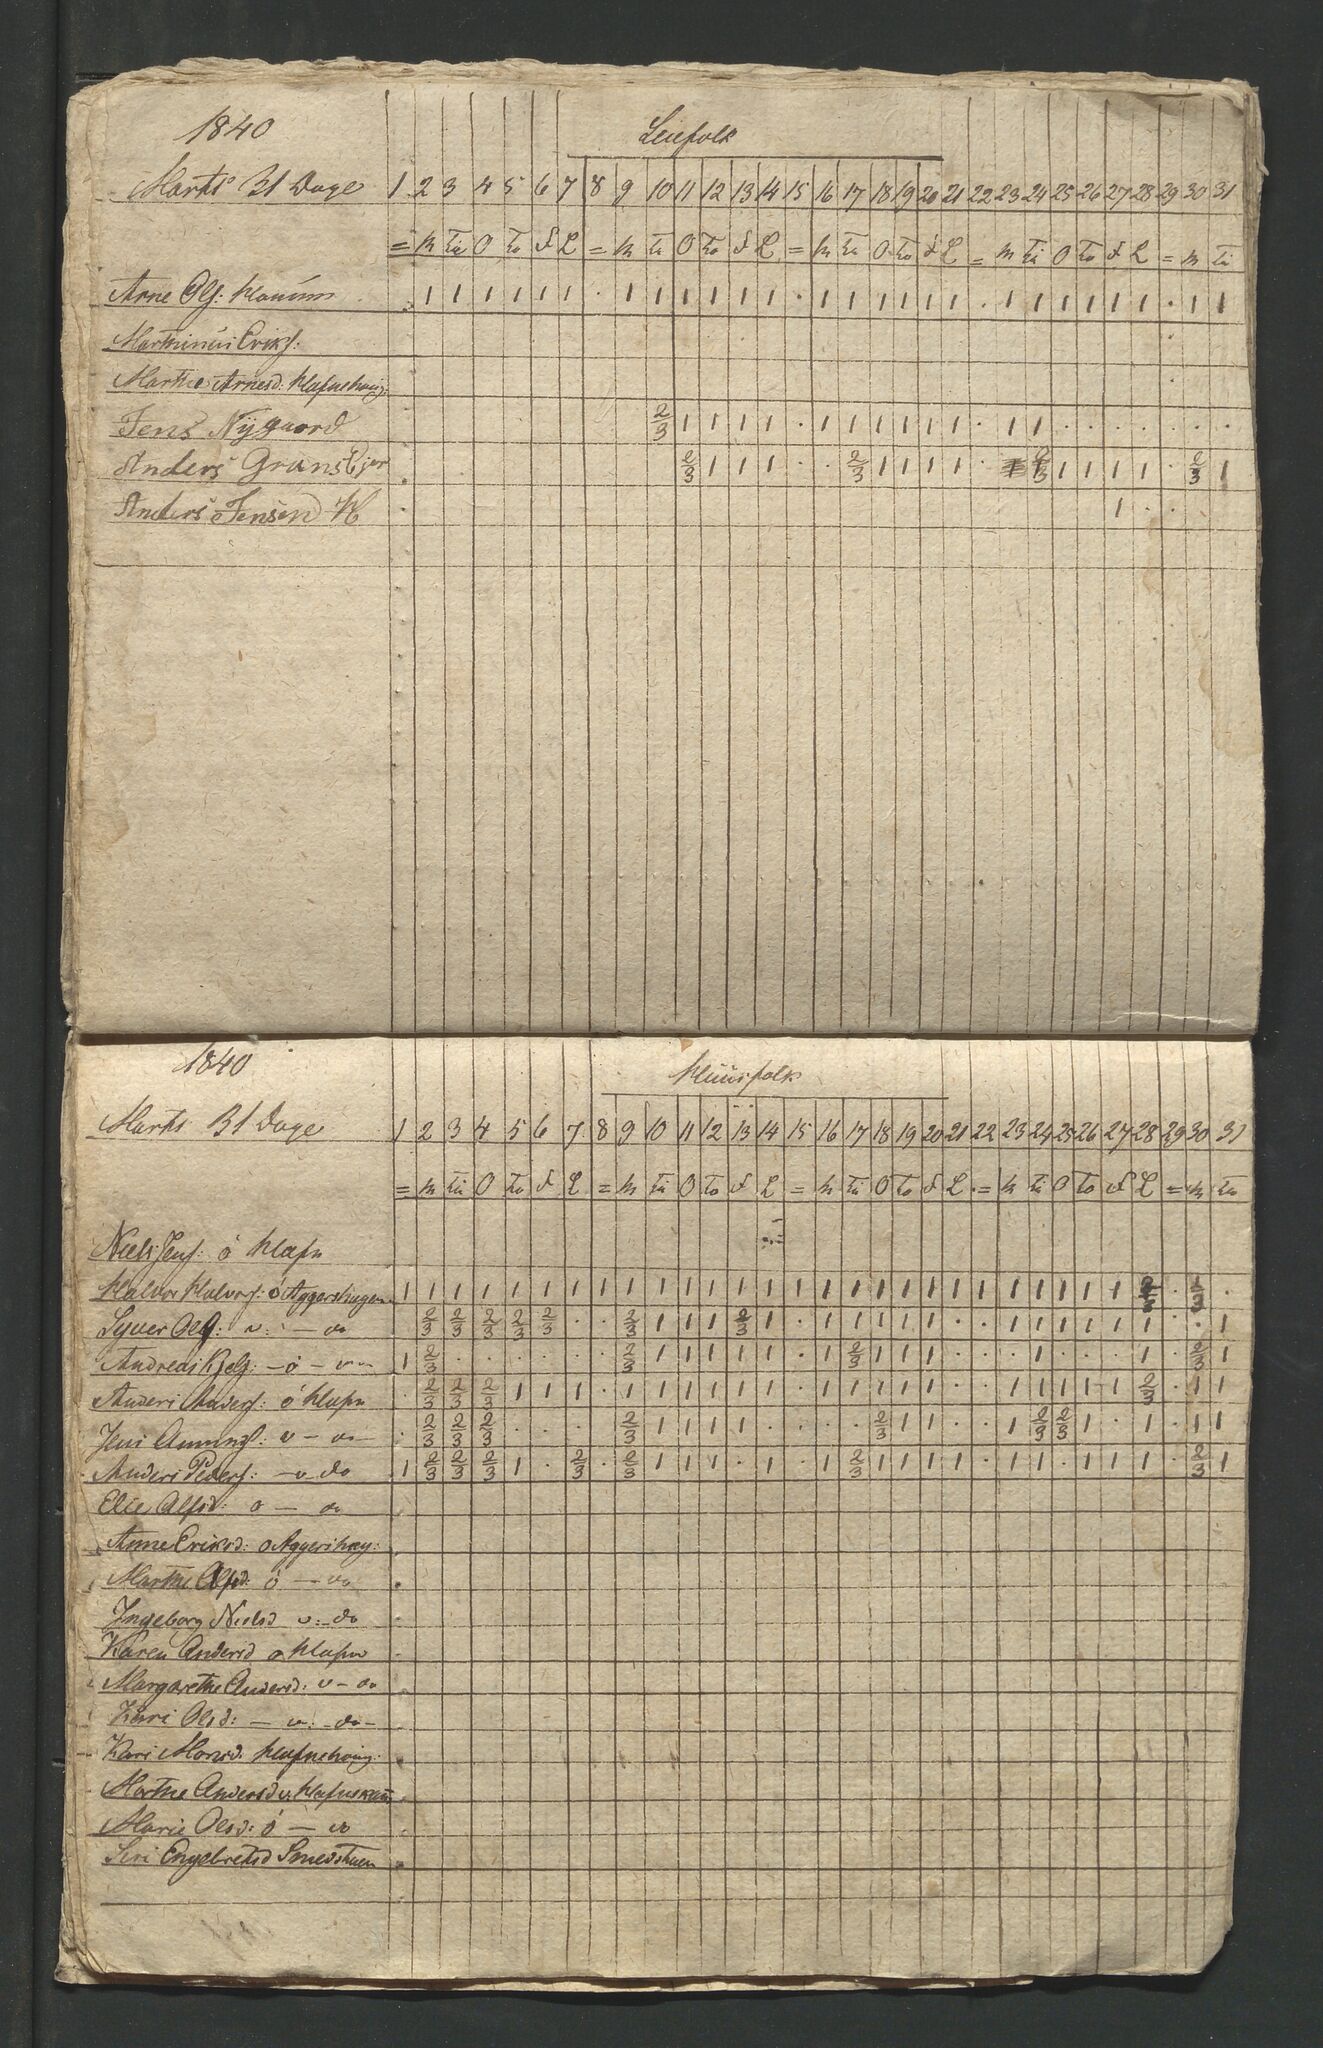 1840
Leiefolk
Marts 31 Dage 1 2 3 4 5 6 7 8 9 10 11 12 13 14 15 16 17 18 19 20 21 22 23 24 25 26 27 28 29 30 31
= M Ti O To F L = M Ti O To F L = M Ti O To F L = M Ti O To F L = M Ti
Arne Ols: . 1 1 1 1 1 1 . 1 1 1 1 1 1 . 1 1 1 1 1 1 . 1 1 1 1 1 1 . 1 1
Marthinus Eriks:
Marthe Arnesd:
Jens Nÿgaard 2/3 1 1 1 1 . 1 1 1 1 1 1 . 1 1 . . . . . . .
Anders 2/3 1 1 1 . . 2/3 1 1 1 1 . 2/3 1 1 1 1 . 2/3 1
Anders Jensen H 1 . .
1840
Huusfolk
Marts 31 Dage 1 2 3 4 5 6 7 8 9 10 11 12 13 14 15 16 17 18 19 20 21 22 23 24 25 26 27 28 29 30 31
= M Ti O To F L = M Ti O To F L = M Ti O To F L = M Ti O To F L = M Ti
Niels Jens: o Hafn
Halvor Halvors: o Aggershagen 1 1 1 1 1 1 1 1 1 1 1 1 1 1 1 1 1 1 1 1 1 1 1 1 1 1 1 2/3 . .
Syver Ols: v: — do 2/3 2/3 2/3 2/3 2/3 . . 2/3 1 1 1 2/3 1 . 1 1 1 1 1 1 . 1 1 1 1 1 1 . . 1
Andreas — o — do 1 2/3 . . . . . . 2/3 1 1 1 1 1 . 1 2/3 1 1 1 . . . 1 . . . 1 . 2/3 1
Anders Anders: o Hafn . 2/3 2/3 2/3 1 1 1 . 1 1 1 1 1 1 . 1 1 1 1 1 . . 1 1 1 1 1 2/3 . 1 1
Jens Amunds: v — do . 2/3 2/3 2/3 . . . . 2/3 1 1 1 1 1 . . . 2/3 1 1 . . 1 2/3 2/3 1 . 1 . 1 1
Anders Peders: — v do 1 2/3 2/3 2/3 1 . 2/3 . 2/3 1 1 1 . 1 . 1 2/3 1 1 1 1 . 1 1 . 1 1 1 . 2/3 1
Elie Alfsd: o — do
Anne Eriksd: o Aggershag:
Marthe Alfsd: o — do
Ingeborg Nielsd v: do
Karen Andersd o Hafn
Margrethe Andersd: v — do
Kari Olsd: — v: — do —
Kari Monsd:
Marthe Andersd v.
Marie Olsd: o — do
Siri Engebretsd Smedstuen